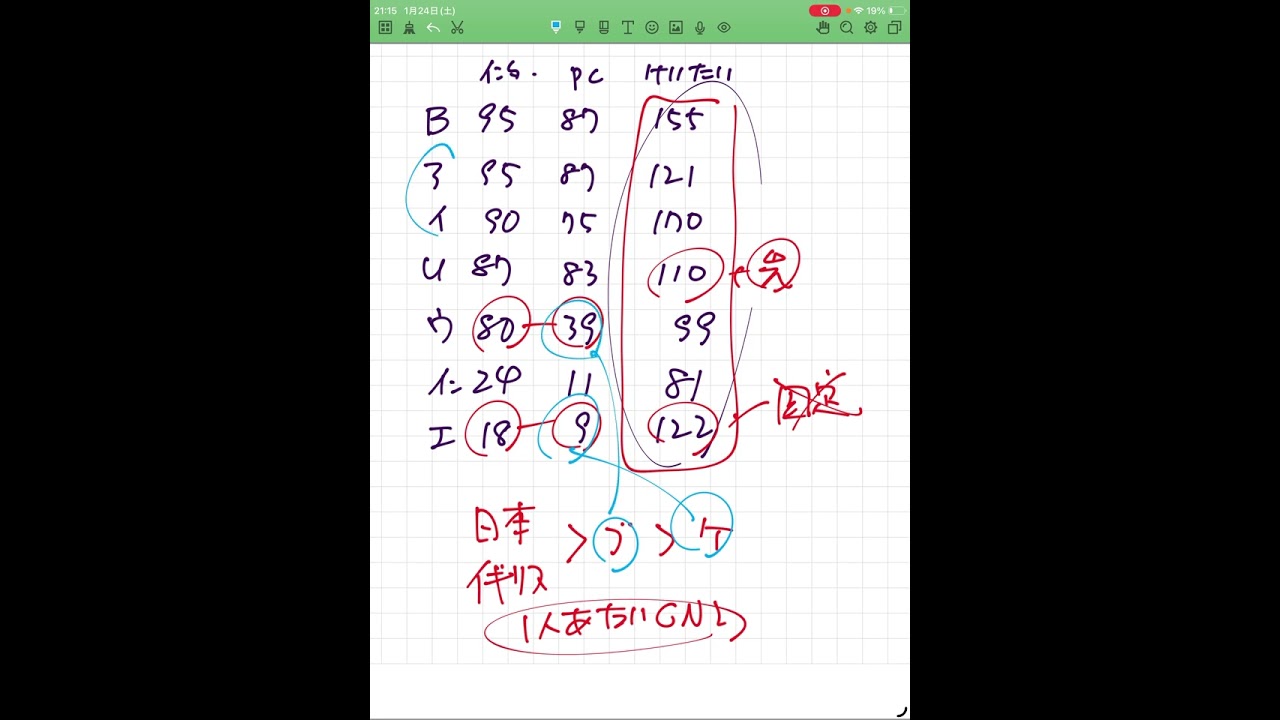 21:15 1月24日(土) 19%
pc けいたい
B 95 87 155
ア 95 87 121
イ 90 75 170
U 87 83 110
ウ 80 39 99
24 11 81
エ 18 9 122
固定
日本
イギリス
> ブ > ケ
1人あたりGNI